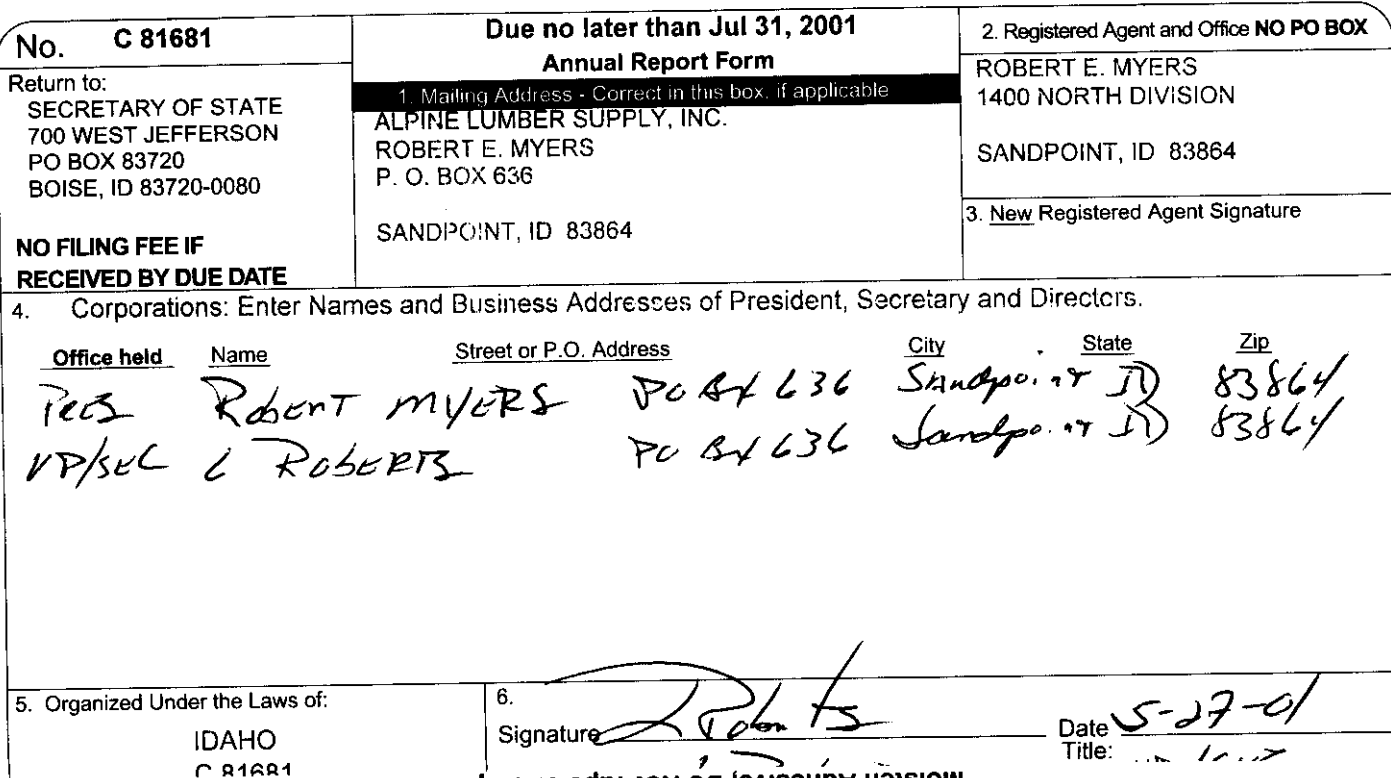 No. C 81681
Return to:
SECRETARY OF STATE
700 WEST JEFFERSON
PO BOX 83720
BOISE, ID 83720-0080
NO FILING FEE IF
RECEIVED BY DUE DATE
Due no later than Jul 31, 2001
Annual Report Form
1. Mailing Address - Correct in this box, if applicable
ALPINE LUMBER SUPPLY, INC.
ROBERT E. MYERS
P. O. BOX 636
SANDPOINT, ID 83864
2. Registered Agent and Office NO PO BOX
ROBERT E. MYERS
1400 NORTH DIVISION
SANDPOINT, ID 83864
3. New Registered Agent Signature
4. Corporations: Enter Names and Business Addresses of President, Secretary and Directors.
Office held Name Street or P.O. Address City State Zip
Pres Robert MYERS PO Bx 636 Sandpoint ID 83864
VP/SEC L ROBERTS PO Bx 636 Sandpoint ID 83864
5. Organized Under the Laws of:
IDAHO
C 81681
6.
Signature L Roberts Date 5-27-01
Title: